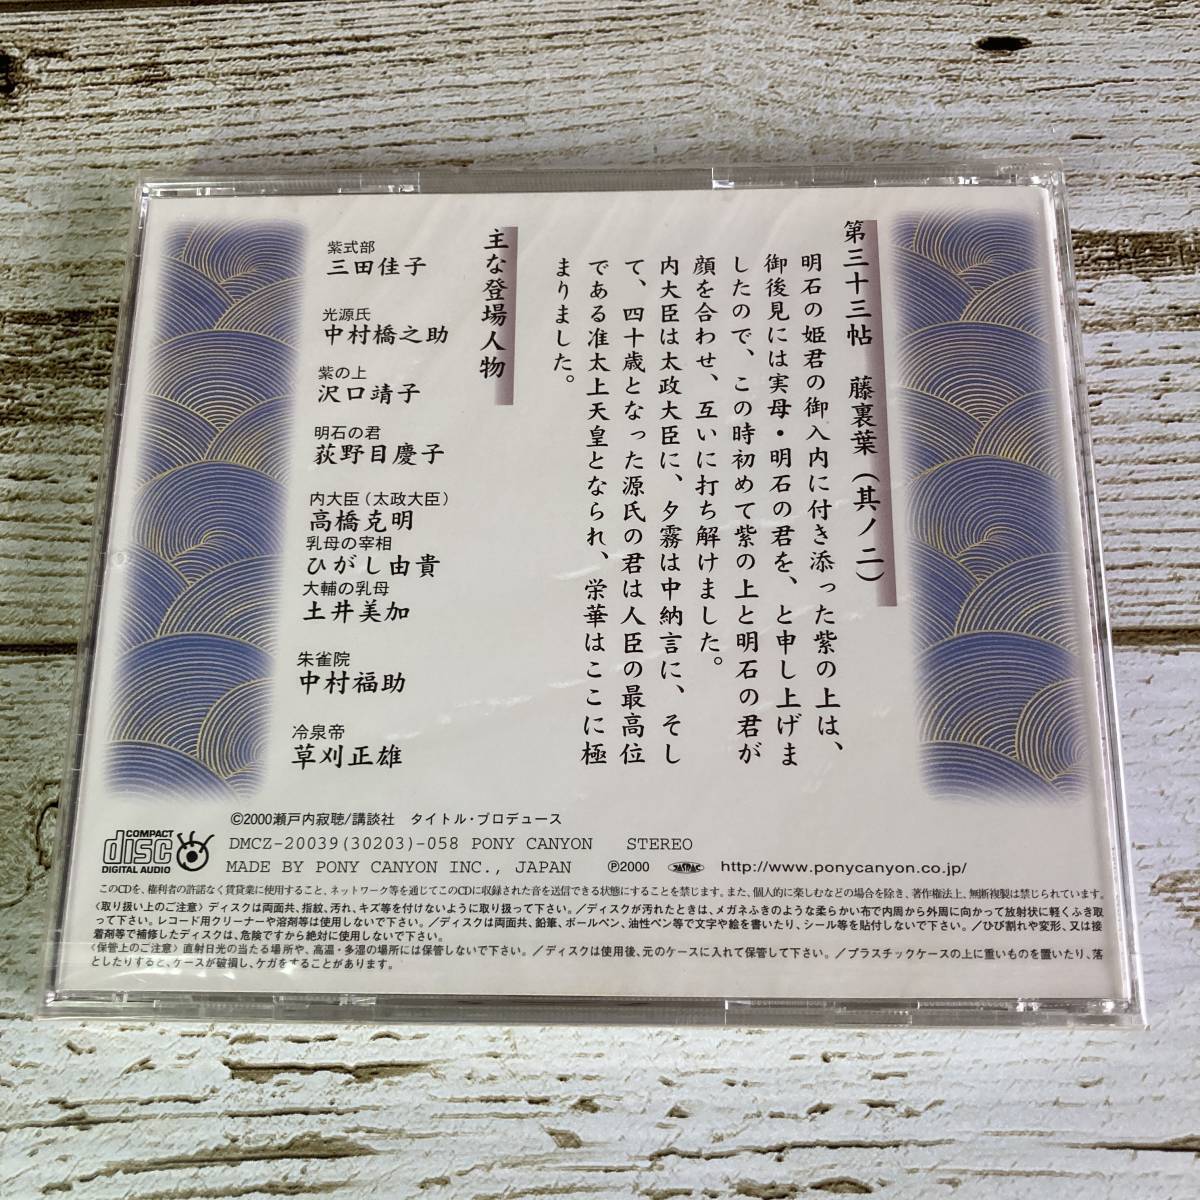 第三十三帖　藤裏葉（其ノ二）
明石の姫君の御入内に付き添った紫の上は、
御後見には実母・明石の君を、と申し上げま
したので、この時初めて紫の上と明石の君が
顔を合わせ、互いに打ち解けました。
内大臣は太政大臣に、夕霧は中納言に、そし
て、四十歳となった源氏の君は人臣の最高位
である准太上天皇となられ、栄華はここに極
まりました。
主な登場人物
紫式部
三田佳子
光源氏
中村橋之助
紫の上
沢口靖子
明石の君
荻野目慶子
内大臣（太政大臣）
高橋克明
乳母の宰相
ひがし由貴
大輔の乳母
土井美加
朱雀院
中村福助
冷泉帝
草刈正雄
©2000瀬戸内寂聴/講談社　タイトル・プロデュース
COMPACT
disc
DIGITAL AUDIO
DMCZ-20039(30203)-058 PONY CANYON　STEREO
MADE BY PONY CANYON INC., JAPAN　℗2000　JASRAC　http://www.ponycanyon.co.jp/
このCDを、権利者の許諾なく賃貸業に使用すること、ネットワーク等を通じてこのCDに収録された音を送信できる状態にすることを禁じます。また、個人的に楽しむなどの場合を除き、著作権法上、無断複製は禁じられています。
〈取り扱い上のご注意〉ディスクは両面共、指紋、汚れ、キズ等を付けないように取り扱って下さい。／ディスクが汚れたときは、メガネふきのような柔らかい布で内周から外周に向かって放射状に軽くふき取
って下さい。レコード用クリーナーや溶剤等は使用しないで下さい。／ディスクは両面共、鉛筆、ボールペン、油性ペン等で文字や絵を書いたり、シール等を貼付しないで下さい。／ひび割れや変形、又は接
着剤等で補修したディスクは、危険ですから絶対に使用しないで下さい。
〈保管上のご注意〉直射日光の当たる場所や、高温・多湿の場所には保管しないで下さい。／ディスクは使用後、元のケースに入れて保管して下さい。／プラスチックケースの上に重いものを置いたり、落
としたりすると、ケースが破損し、ケガをすることがあります。